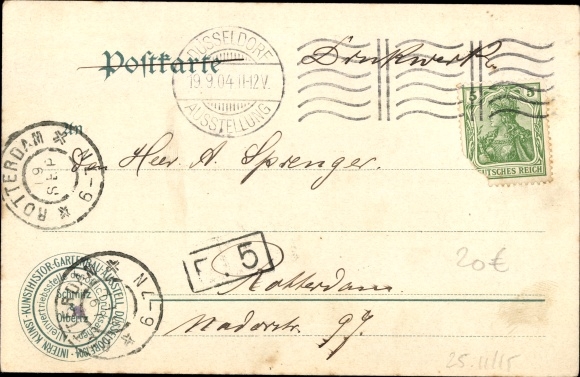 Postkarte
DÜSSELDORF
19.9.04 11-12V.
AUSSTELLUNG
Drukwerk
5 5
DEUTSCHES REICH
An
ROTTERDAM
19
SEP
7-9 N
Heer A. Sprenger.
F. 5
20€
Rotterdam
7-9 N
INTERN. KUNST- KUNSTHISTOR- GARTENBAU-AUSSTELL. DÜSSELDORF 1904
Schmitz
Olbertz
97.
25.11/15